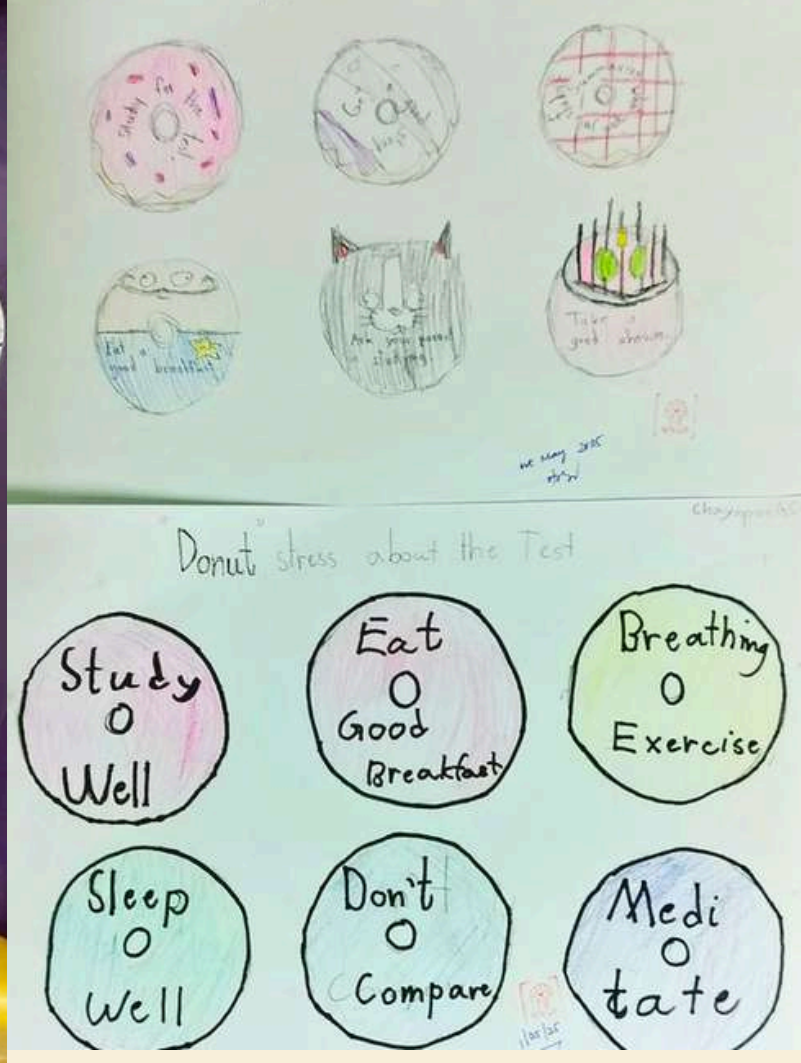 Study for
the test
Go
Eat a
good breakfast
Ask your parent
studying!
Take a
good shower
May
"Donut" stress about the Test
Study
Well
Eat
Good
Breakfast
Breathing
Exercise
Sleep
Well
Don't
Compare
Medi
tate